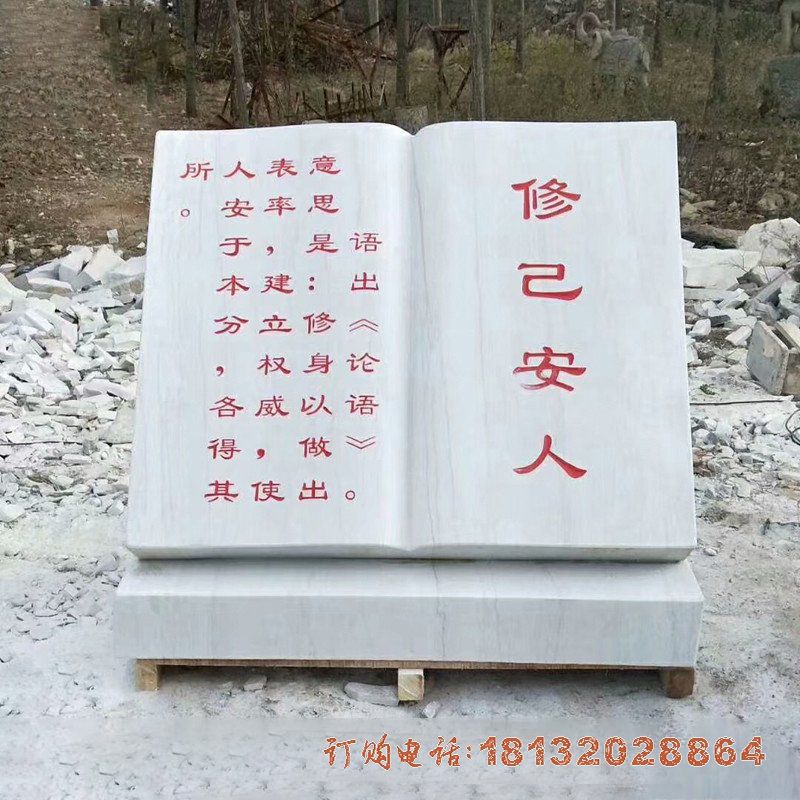 修己安人
语出《论语》。
意思是：修身以做出
表率，建立权威，使
人安于本分，各得其
所。
订购电话:18132028864